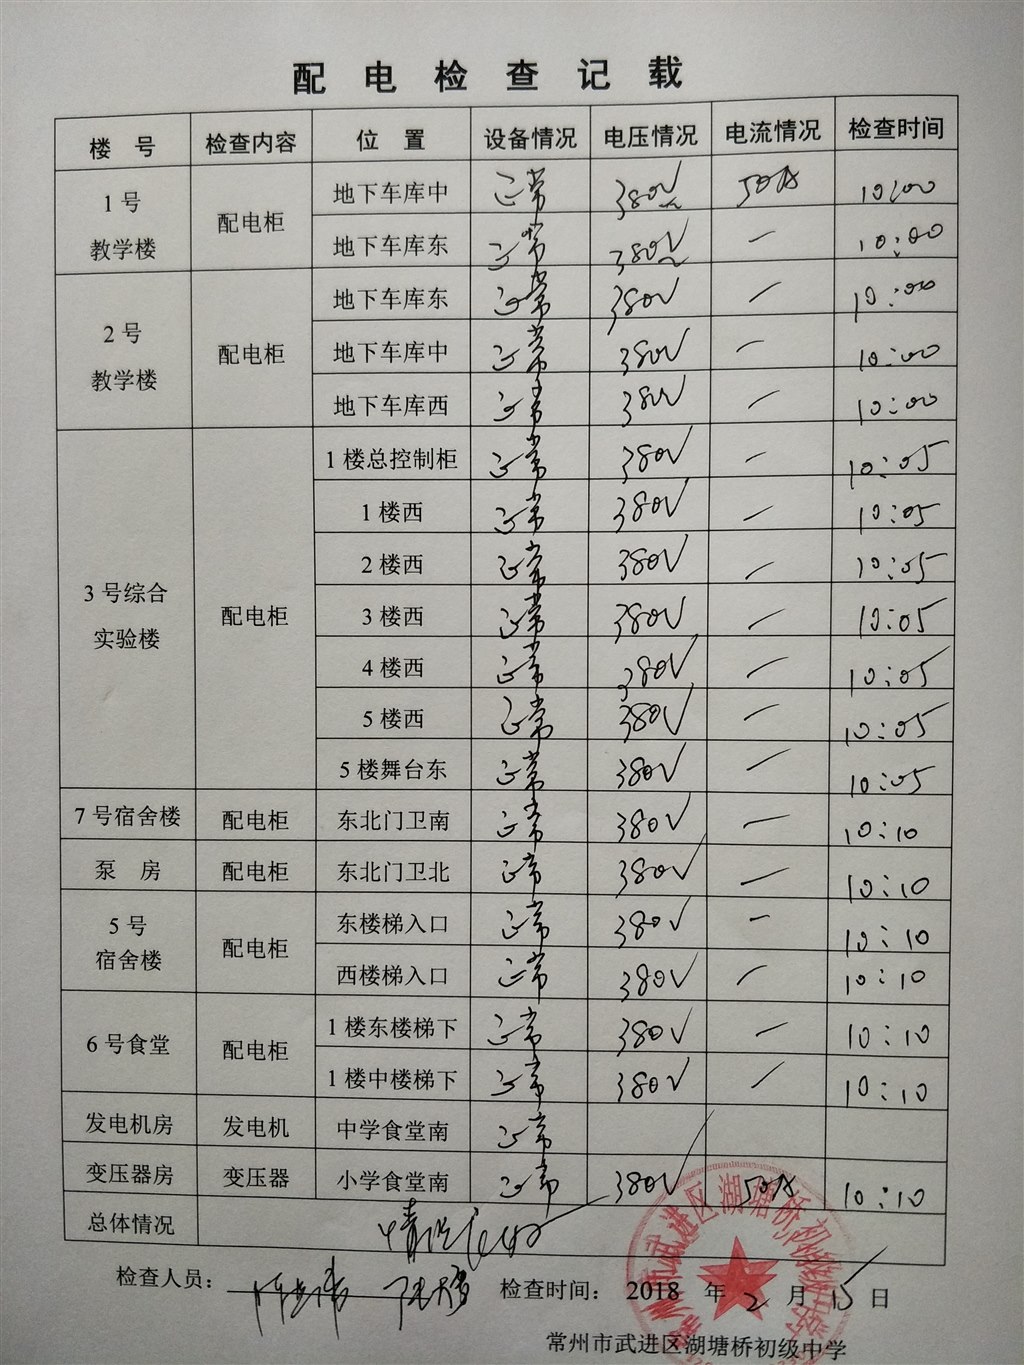 配电检查记载
楼号 检查内容 位置 设备情况 电压情况 电流情况 检查时间
1号教学楼 配电柜 地下车库中 正常 380V 50A 10:00
地下车库东 正常 380V — 10:00
2号教学楼 配电柜 地下车库东 正常 380V — 10:00
地下车库中 正常 380V — 10:00
地下车库西 正常 380V — 10:00
3号综合实验楼 配电柜 1楼总控制柜 正常 380V — 10:05
1楼西 正常 380V — 10:05
2楼西 正常 380V — 10:05
3楼西 正常 380V — 10:05
4楼西 正常 380V — 10:05
5楼西 正常 380V — 10:05
5楼舞台东 正常 380V — 10:05
7号宿舍楼 配电柜 东北门卫南 正常 380V — 10:10
泵房 配电柜 东北门卫北 正常 380V — 10:10
5号宿舍楼 配电柜 东楼梯入口 正常 380V — 10:10
西楼梯入口 正常 380V — 10:10
6号食堂 配电柜 1楼东楼梯下 正常 380V — 10:10
1楼中楼梯下 正常 380V — 10:10
发电机房 发电机 中学食堂南 正常
变压器房 变压器 小学食堂南 正常 380V 50A 10:10
总体情况 情况良好
检查人员： 检查时间： 2018 年 2 月 15 日
常州市武进区湖塘桥初级中学